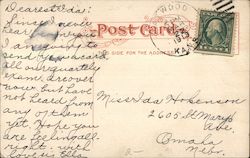 Dearest Ida:
Since I never
hear from you
I am going to
send you a card.
All our quaterly
exams are over
now but have
not heard from
any of them
yet. Hope you
are feeling all
right. with
love
Post Card
THIS SIDE FOR THE ADDRESS
WOOD
KAN
Miss Ida Hokenson
2605 St Marys
Ave.
Omaha
Nebr.